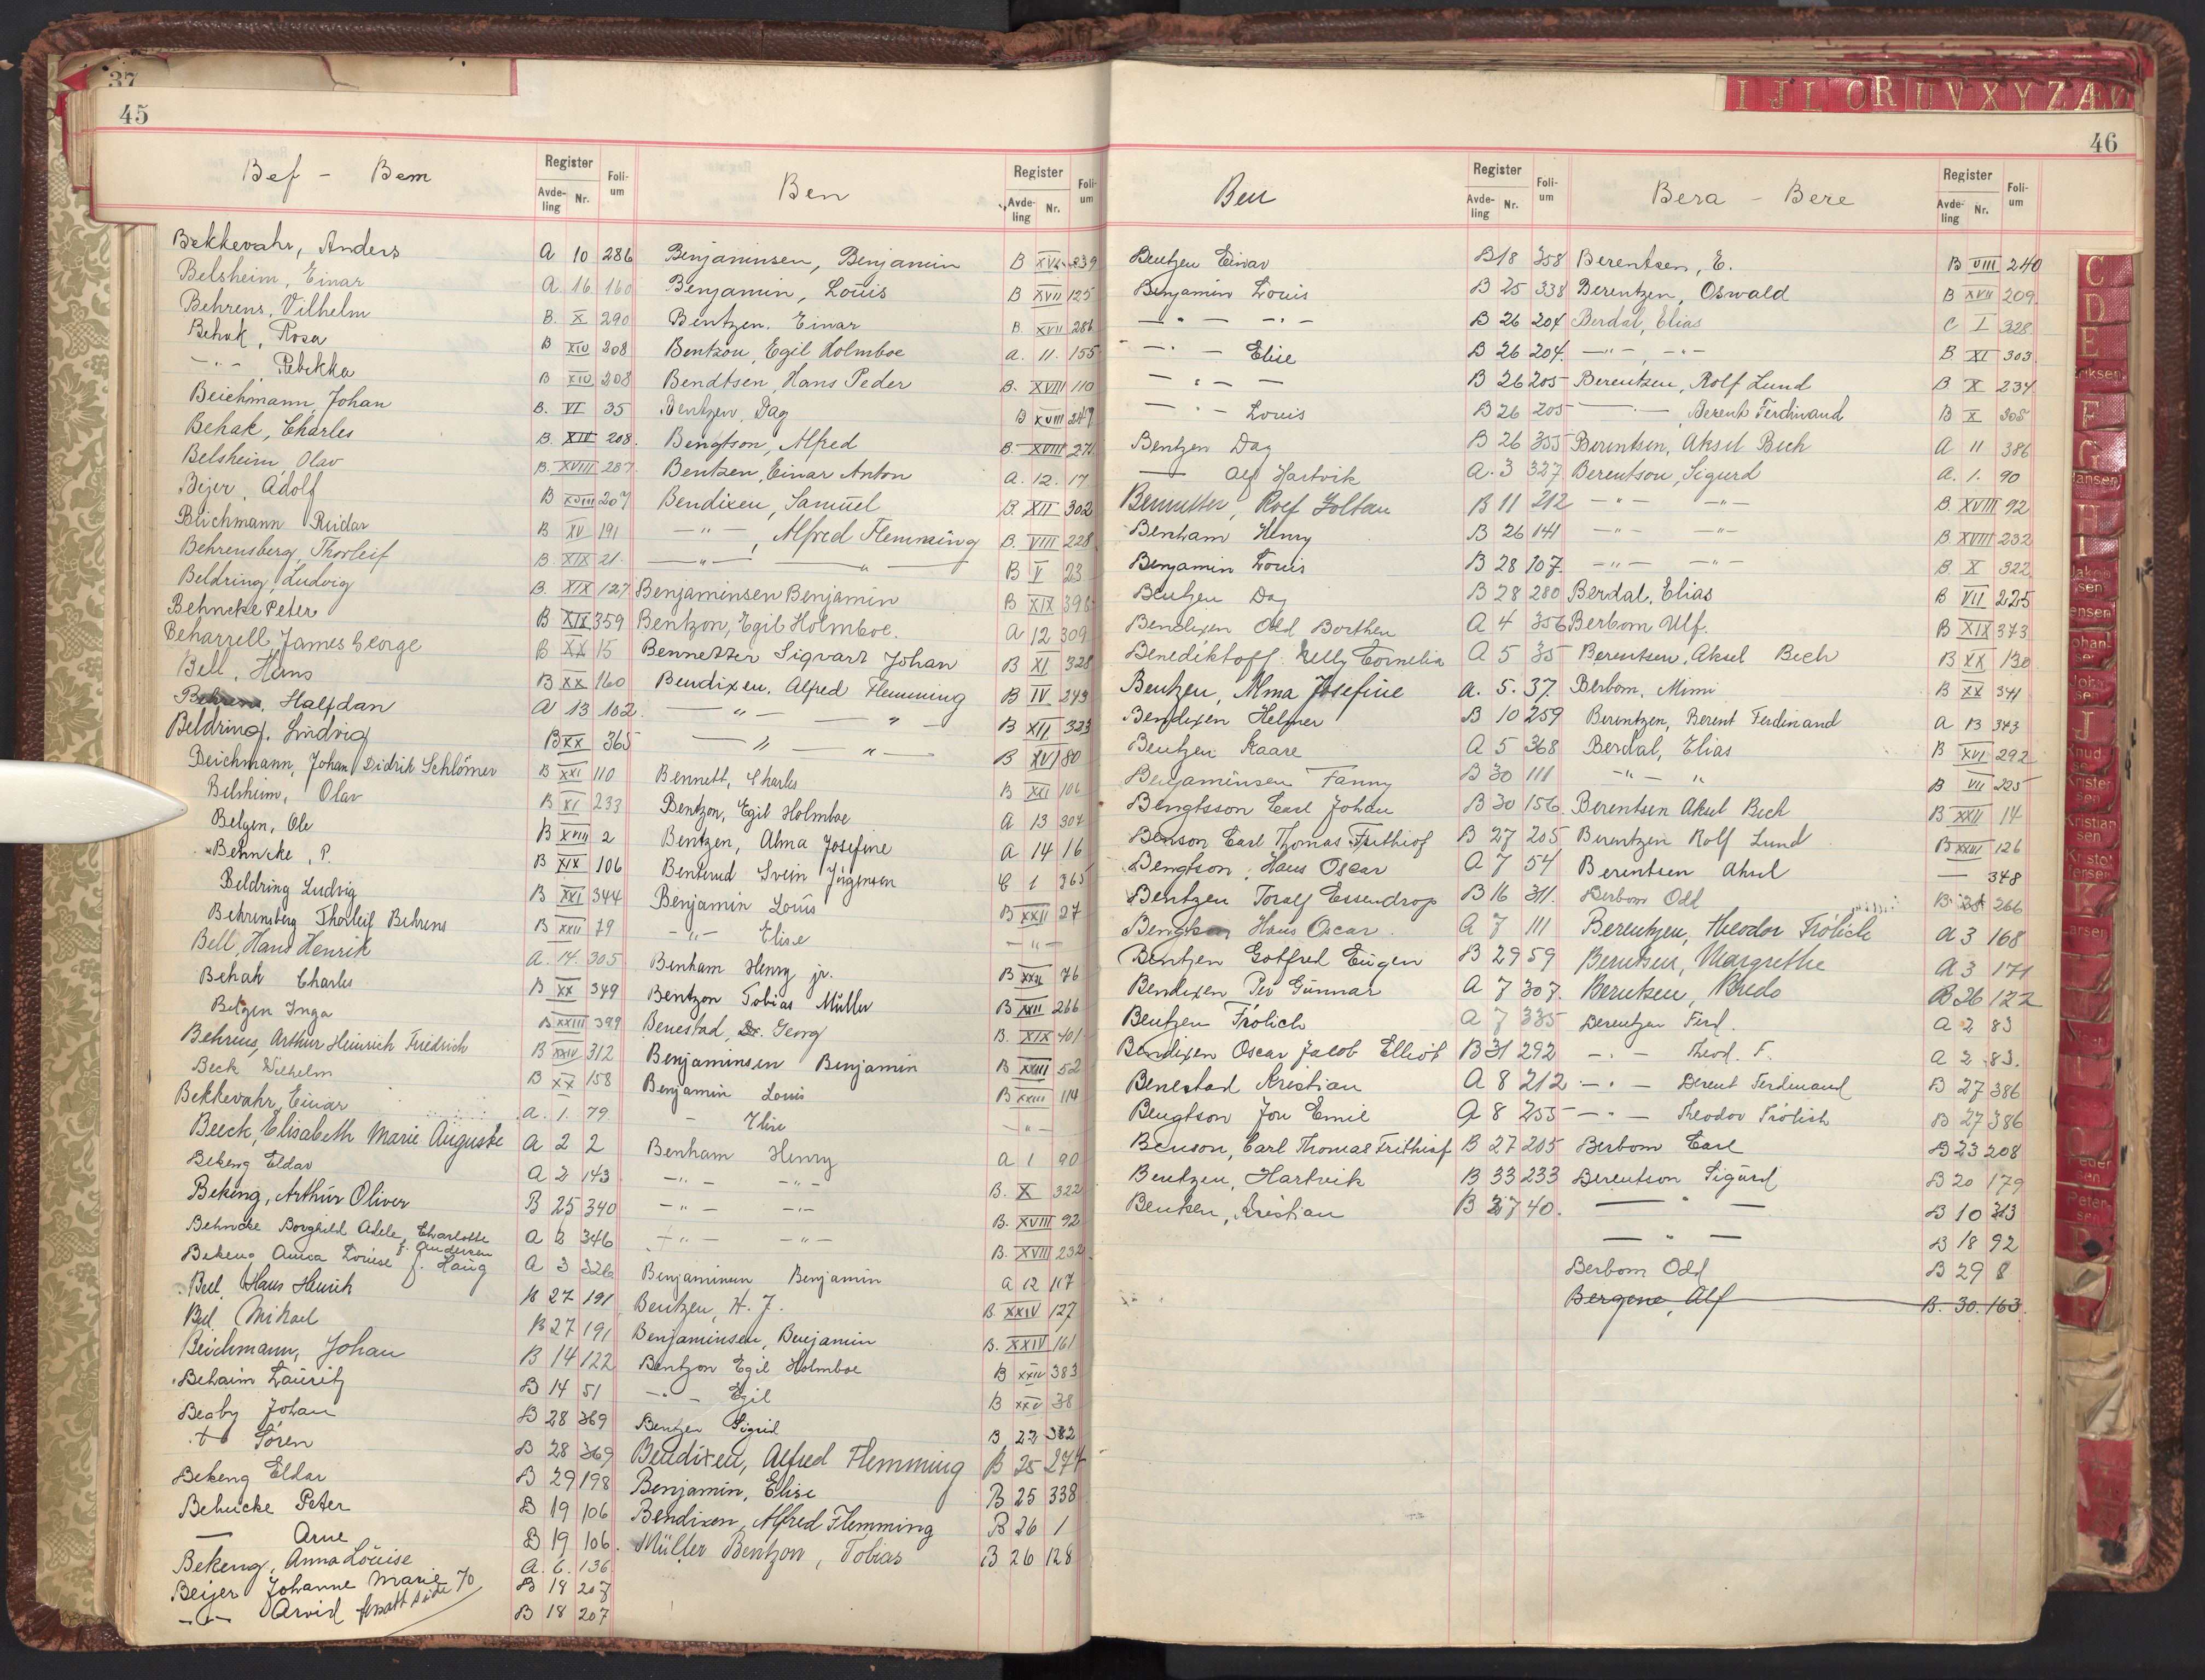 37
45
Bef - Bem
Register
Avde-ling Nr.
Foli-um
Bekkevahr, Anders A 10 286
Belsheim, Einar A. 16. 160
Behrens, Vilhelm B. X 290
Behak, Rosa B XIV 208
-"- , Rebekka B XIV 208
Beichmann, Johan B. VI 35
Behak, Charles B. XIV 208.
Belsheim, Olav B. XVIII 287
Bejer, Adolf B XVIII 207
Beichmann Reidar B XV 191
Behrensberg, Thorleif B. XIX 21.
Beldring, Ludvig B. XIX 127
Behncke Peter B XIX 359
Beharrell, James George B XX 15
Bell, Hans B XX 160
Halfdan A 13 102.
Beldring, Ludvig B XX 365
Beichmann, Johan Didrik Schlömer B XXI 110
Belsheim, Olav B XI 233
Belgen, Ole B XVIII 2
Behncke, P. B XIX 106
Beldring Ludvig B XXI 344
Behrensberg Thorleif Behrens B XXII 79
Bell, Hans Henrik A. 14. 305
Behak Charles B XX 349
Belgen Inga B XXIII 399
Behrens, Arthur Heinrich Friedrich B XXIV 312
Beck Wilhelm B XX 158
Bekkevahr, Einar A. 1. 79.
Beeck, Elisabeth Marie Auguste A 2 2
Bekeng Eldar A 2 143
Bekeng, Arthur Oliver B 25 340
Behncke Borghild Adele, Charlotte f. Andersen A 2 346
Bekeng Anna Louise f. Haug A 3 326
Bell, Hans Henrik B 27 191
Bell Mikael B 27 191
Beichmann, Johan B 14 122
Behaim Lauritz B 14 51
Beaby Johan B 28 369
Sören B 28 369
Bekeng Eldar B 29 198
Behncke Peter B 19 106
— Arne B 19 106.
Bekeng, Anna Louise A. 6. 136
Beijer Johanne Marie B 18 207
-"- Arvid forsatt side 70 B 18 207
Ben
Register
Avde-ling Nr.
Foli-um
Benjaminsen, Benjamin B XVI 239
Benjamin, Louis B XVII 125
Bentzen, Einar B. XVII 286
Bentzon, Egil Holmboe A. 11. 155
Bendtsen, Hans Peder B. XVIII 110
Bentzen, Dag B XVIII 249
Bengtson, Alfred B. XVIII 271
Bentzen, Einar Anton A. 12. 17
Bendixen, Samuel B. XII 302
-"- , Alfred Flemming B. VIII 228
-"- -"- B V 23
Benjaminsen Benjamin B XIX 396
Bentzon, Egil Holmboe. A 12 309
Bennetter Sigvart Johan B XI 328
Bendixen, Alfred Flemming B IV 243
-"- -"- B XII 323
-"- -"- B XVI 80
Bennett, Charles B XXI 106
Bentzon, Egil Holmboe A 13 304
Bentzen, Alma Josefine A 14 16
Benterud Svein Jörgensen C 1 365
Benjamin Louis B XXII 27
-"- Elise -"-
Benham Henry jr. B XXII 76
Bentzon Tobias Müller B XXII 266
Benestad, Dr. Georg B. XIX 401
Benjaminsen Benjamin B XXIII 52
Benjamin Louis B XXIII 114
- Elise -"-
Benham Henry A 1 90
-"- -"- B. X 322
-"- -"- B. XVIII 92
-"- -"- B. XVII 232
Benjaminsen Benjamin A 12 117
Bentzen, H. J. B XXIV 127
Benjaminsen, Benjamin B. XXIV 161
Bentzon Egil Holmboe B XXIV 383
-"- Egil B XXV 38
Bentzen Sigrid B 22 382
Bendixen, Alfred Flemming B 25 277
Benjamin, Elise B 25 338
Bendixen, Alfred Flemming B 26 1
Müller Bentzon, Tobias B 26 128
46
I J L O R U V X Y Z Æ
Ben
Register
Avde-ling Nr.
Foli-um
Bentzen Einar B 18 358
Benjamin Louis B 25 338
-"- -"- B 26 204
-"- Elise B 26 204.
-"- - B 26 205
-"- Louis B 26 205
Bentzen Dag B 26 355
— Alf Hartvik A. 3 327
Bennetter, Rolf Zoltan B 11 212
Benham Henry B 26 141
Benjamin Louis B 28 107.
Bentzen Dag B 28 280
Bendixen Odd Borthen A 4 356
Benediktoff Nelly Cornelia A 5 35
Bentzen, Alma Josefine A. 5. 37.
Bendixen Helmer B 10 259
Bentzen Kaare A 5 368
Benjaminsen Fanny B 30 111
Bengtsson Carl Johan B 30 156
Benson Carl Thomas Frithiof B 27 205
Bengtson, Hans Oscar A 7 54
Bentzen Toralf Essendrop B 16 311.
Hans Oscar. A 7 111
Bentzen Gotfred Eugen B 29 59
Bendixen Per Gunnar A 7 307.
Bentzen Frölich A 7 335
Bendixen Oscar Jacob Elliot B 31 292
Benestad Kristian A 8 212
Bengtson Jon Emil A 8 255
Benson, Carl Thomas Frithiof B 27 205
Bentzen, Hartvik B 33 233
Bentzen, Kristian B 37 40.
Bera - Bere
Register
Avde-ling Nr.
Foli-um
Berentsen, E. B VIII 240
Berentzen, Oswald B XVII 209.
Berdal, Elias C I 328
-"- , -"- B. XI 303
Berentzen, Rolf Lund B X 234
-"- , Berent Ferdinand B X 305
Berentsen, Aksel Bech A 11 386
Berentson, Sigurd A. 1. 90
-"- -"- B. XVIII 92
-"- -"- B XVIII 232
-"- -"- B. X 322
Berdal, Elias B VII 225
Berbom Ulf. B XIX 373
Berentsen, Aksel Bech B XX 130
Berbom, Mimi B XX 341
Berentzen, Berent Ferdinand A 13 343
Berdal, Elias B XVI 292
-"- " B VII 225
Berentsen Aksel Bech B XXII 14
Berentzen Rolf Lund B XXIII 126
Berentsen Aksel — 348
Berbom Odd B 25 266
Berentzen, Theodor Frölich A 3 168
Berntsen, Margrethe A 3 171
Berntsen, Bredo B 26 122
Berentzen Ferd. A 2 83
-"- Theod. F. A 2 83.
-"- Berent Ferdinand B 27 386
-"- Theodor Frölich B 27 386
Berbom Carl B 23 208
Berentson Sigurd B 20 179
— " — B 10 313
— " — B 18 92
Berbom Odd B 29 8
Bergene, Alf B. 30. 163.
C
D
E
Eriksen
F
G
Hansen
H
I
Jakobsen
Jensen
Johansen
J
Knudsen
Kristensen
Kristiansen
Kristoffersen
K
Larsen
Pedersen
Petersen